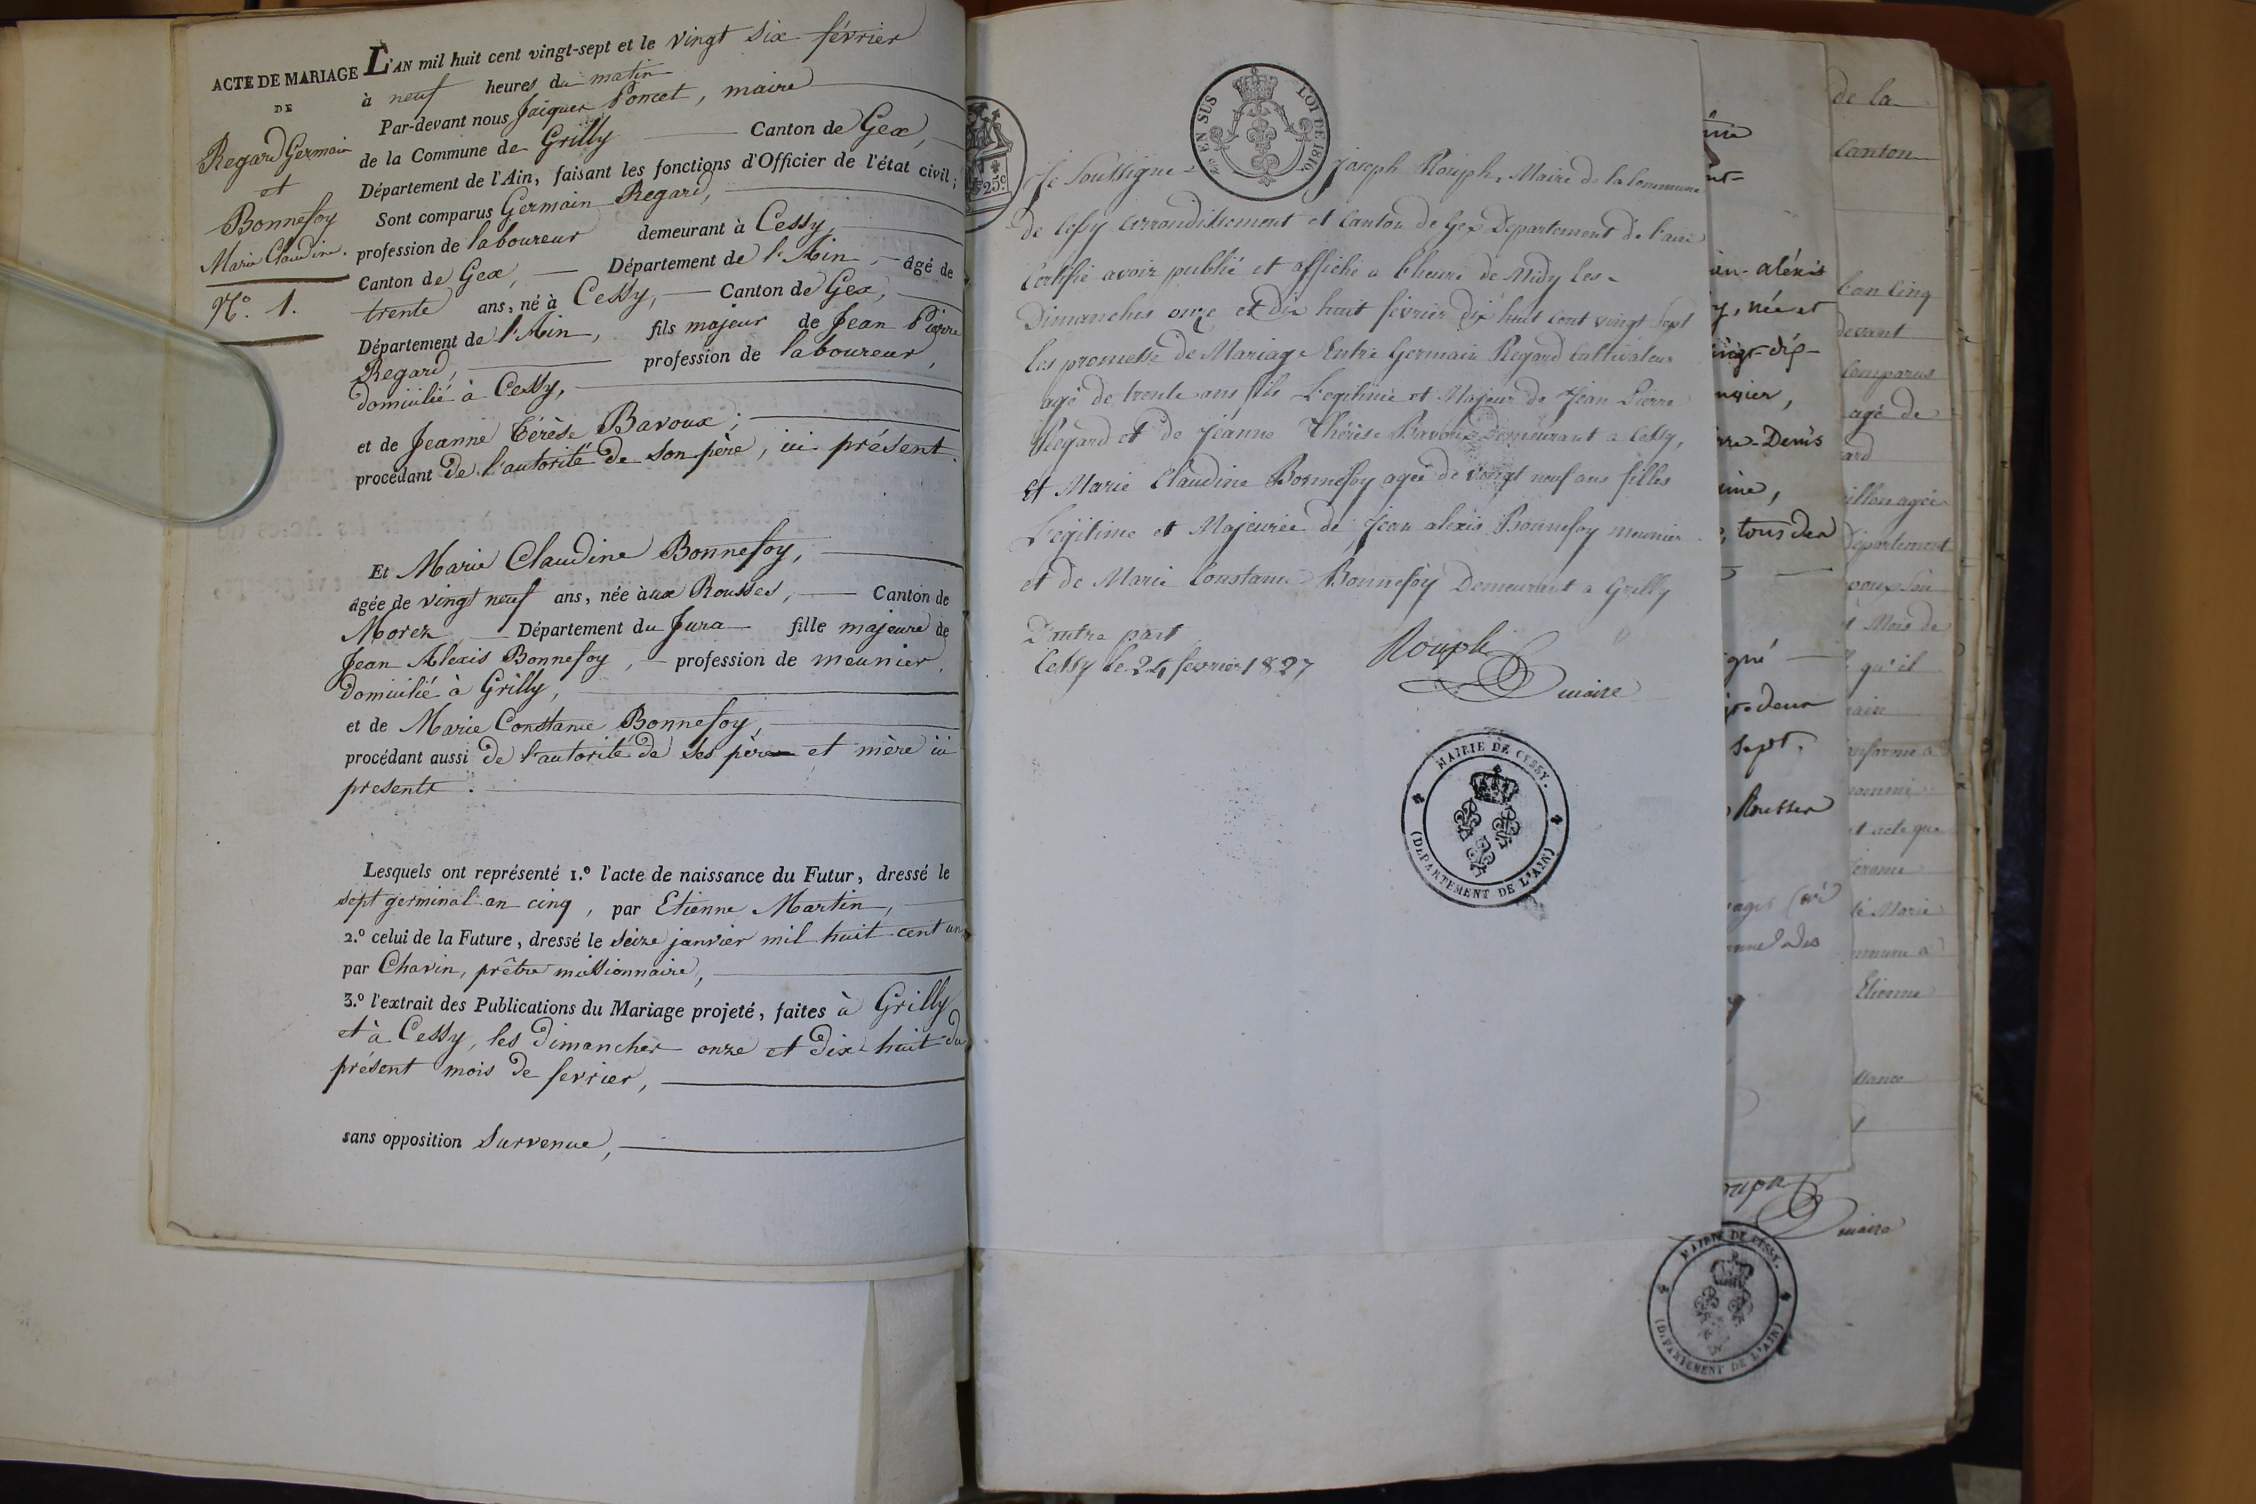 ACTE DE MARIAGE
DE
Regard Germain
et
Bonnefoy
Marie Claudine.
N.º 1.
L'AN mil huit cent vingt-sept et le vingt six février
à neuf heures du matin
Par-devant nous Jacques Poncet, maire
de la Commune de Grilly Canton de Gex,
Département de l'Ain, faisant les fonctions d'Officier de l'état civil;
Sont comparus Germain Regard,
profession de laboureur demeurant à Cessy,
Canton de Gex, Département de l'Ain, âgé de
trente ans, né à Cessy, Canton de Gex,
Département de l'Ain, fils majeur de Jean Pierre
Regard, profession de laboureur,
domicilié à Cessy,
et de Jeanne Térèse Bavoux;
procédant de l'autorité de son père, ici présent.
Et Marie Claudine Bonnefoy,
âgée de vingt neuf ans, née aux Rousses, Canton de
Morez Département du Jura fille majeure de
Jean Alexis Bonnefoy, profession de meunier,
domicilié à Grilly,
et de Marie Constance Bonnefoy,
procédant aussi de l'autorité de ses père et mère ici
presents.
Lesquels ont représenté 1.º l'acte de naissance du Futur, dressé le
sept germinal an cinq, par Etienne Martin,
2.º celui de la Future, dressé le seize janvier mil huit cent un
par Chavin, prêtre missionnaire,
3.º l'extrait des Publications du Mariage projeté, faites à Grilly
et à Cessy, les dimanches onze et dix huit du
présent mois de fevrier,
sans opposition survenue,
25c
EN SUS
LOI DE 1816.
Je Soussigné Joseph Rouph, Maire de la Commune
de Cessy arrondissement et Canton de Gex Departement de l'ain
Certifie avoir publié et affiché a l'heure de Midy les
Dimanches onze et dix huit fevrier dix huit cent vingt sept
les promesse de Mariage Entre Germain Regard Cultivateur
agé de trente ans fils Legitime et Majeur de Jean Pierre
Regard et de Jeanne Thérèse Bavoux Demeurant a Cessy,
et Marie Claudine Bonnefoy agée de vingt neuf ans filles
Legitime et Majeurée de Jean alexis Bonnefoy meunier
et de Marie Constance Bonnefoy Demeurant a Grilly
D'autre part
Cessy le 24 fevrier 1827
Rouph
maire
MAIRIE DE CESSY.
(DEPARTEMENT DE L'AIN)
alexis
née et
Denis
tous deux
deux
sept,
Rousses
de la
Canton
l'an Cinq
devant
Comparus
agé de
agée
Departement
Mois de
qu'il
acte que
Marie
Etienne
maire
MAIRIE DE CESSY.
(DEPARTEMENT DE L'AIN)